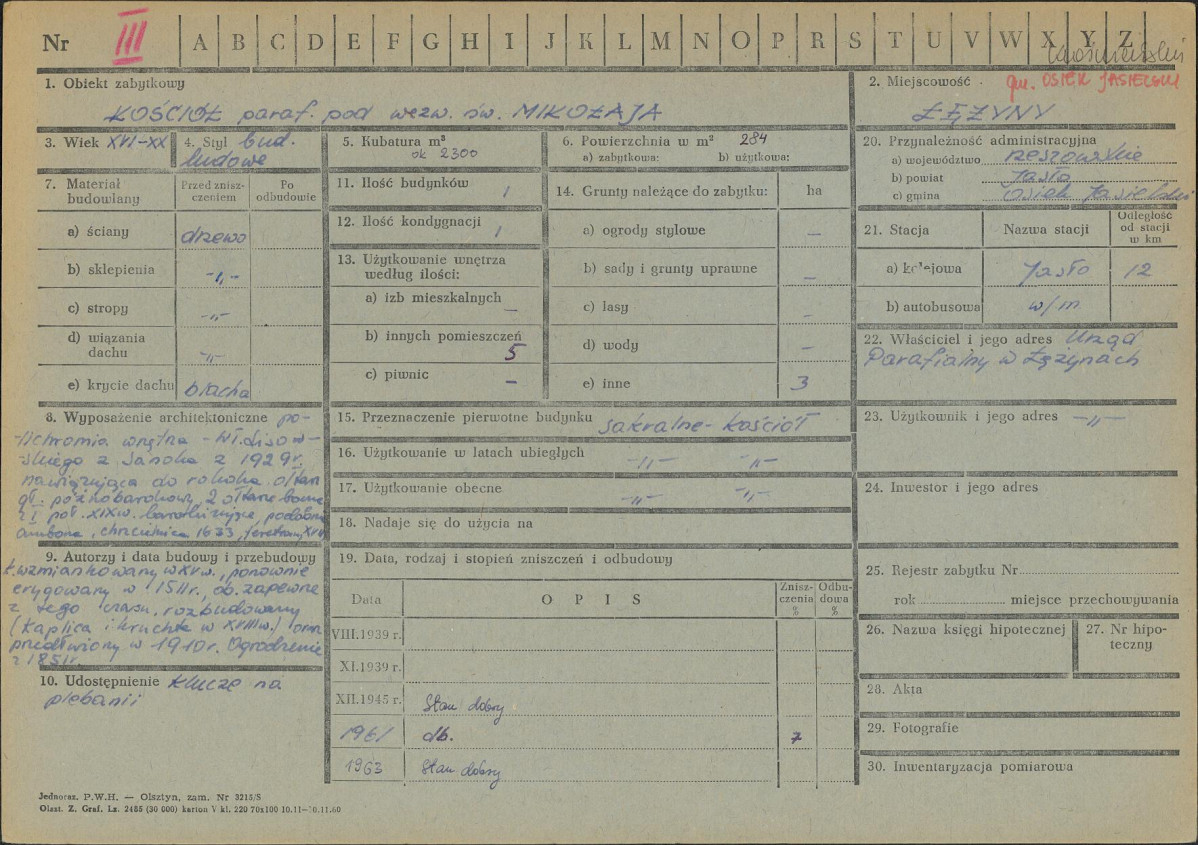 Nr III A B C D E F G H I J K L M N O P R S T U V W X Y Z
1. Obiekt zabytkowy
KOŚCIÓŁ paraf. pod wezw. św. MIKOŁAJA
2. Miejscowość
gm. OSIEK JASIELSKI
ŁĘŻYNY
3. Wiek XVI-XX
4. Styl bud.
ludowe
5. Kubatura m³
ok 2300
6. Powierzchnia w m² 284
a) zabytkowa: b) użytkowa:
7. Materiał budowlany
Przed znisz-
czeniem
Po
odbudowie
a) ściany drzewo
b) sklepienia -„-
c) stropy -„-
d) wiązania
dachu -„-
e) krycie dachu blacha
8. Wyposażenie architektoniczne po-
lichromia wnętrza - Wł. Lisow-
skiego z Sanoka z 1929 r.
nawiązująca do rokoka. ołtarz
gł. późnobarokowy, 2 ołtarze boczne
z I poł. XIX w. barokizujące, podobna
ambona, chrzcielnica 1633, feretrony XVIII
9. Autorzy i data budowy i przebudowy
wzmiankowany w XV w., ponownie
erygowany w 1511 r., ob. zapewne
z tego czasu, rozbudowany
(kaplica i kruchta w XVIII w.) oraz
przedłużony w 1910 r. Ogrodzenie
z 1851 r.
10. Udostępnienie klucze na
plebanii
11. Ilość budynków 1
12. Ilość kondygnacji 1
13. Użytkowanie wnętrza
według ilości:
a) izb mieszkalnych –
b) innych pomieszczeń
5
c) piwnic –
14. Grunty należące do zabytku: ha
a) ogrody stylowe –
b) sady i grunty uprawne –
c) lasy –
d) wody –
e) inne 3
15. Przeznaczenie pierwotne budynku sakralne - kościół
16. Użytkowanie w latach ubiegłych -„- -„-
17. Użytkowanie obecne -„- -„-
18. Nadaje się do użycia na
19. Data, rodzaj i stopień zniszczeń i odbudowy
Data O P I S
Znisz-
czenia
%
Odbu-
dowa
%
VIII.1939 r.
XI.1939 r.
XII.1945 r. Stan dobry
1961 db. 7
1963 Stan dobry
20. Przynależność administracyjna
a) województwo rzeszowskie
b) powiat Jasło
c) gmina Osiek Jasielski
21. Stacja Nazwa stacji
Odległość
od stacji
w km
a) kolejowa Jasło 12
b) autobusowa w/m
22. Właściciel i jego adres Urząd
Parafialny w Łężynach
23. Użytkownik i jego adres -„-
24. Inwestor i jego adres
25. Rejestr zabytku Nr
rok miejsce przechowywania
26. Nazwa księgi hipotecznej
27. Nr hipo-
teczny
28. Akta
29. Fotografie
30. Inwentaryzacja pomiarowa
Jednocz. P.W.H. — Olsztyn, zam. Nr 3215/S
Olszt. Z. Graf. Lz. 2485 (30 000) karton V kl. 220 70x100 10.11-30.11.60